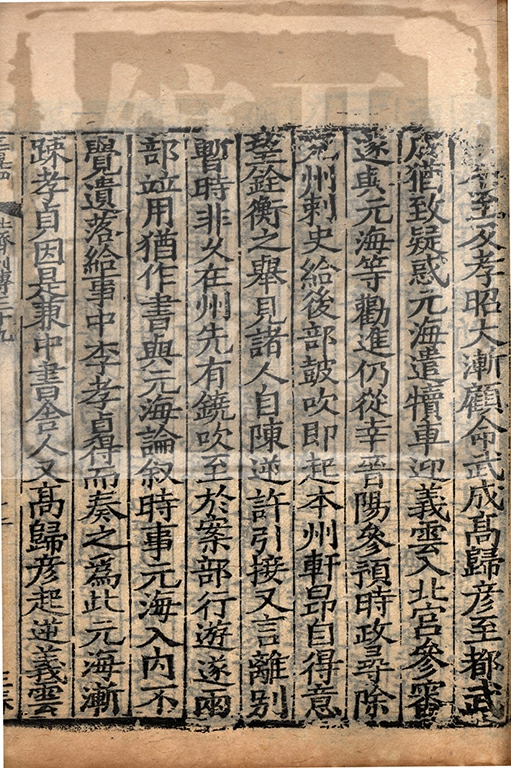 至及孝昭大漸顧命武成高歸彥至都武
成猶致疑惑元海遣犢車迎義雲入北宮參審
遂與元海等勸進仍從幸晉陽參預時政尋除
兗州刺史給後部鼓吹即起本州軒昂自得意
望銓衡之舉見諸人自陳逆許引接又言離别
暫時非久在州先有鐃吹至於案部行遊遂兩
部竝用猶作書與元海論叙時事元海入内不
覺遺落給事中李孝貞得而奏之爲此元海漸
疎孝貞因是兼中書舍人又高歸彥起逆義雲